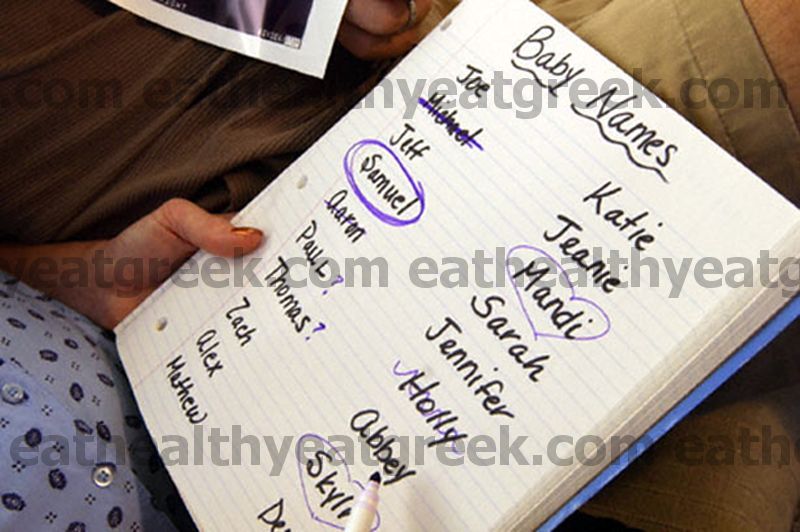 Baby Names
Joe
Michael
Jeff
Samuel
Aaron
Paul?
Thomas?
Zach
Alex
Mathew
Katie
Jeanie
Mandi
Sarah
Jennifer
Holly
Abbey
eathealthyeatgreek.com
eathealthyeatgreek.com
eathealthyeatgreek.com